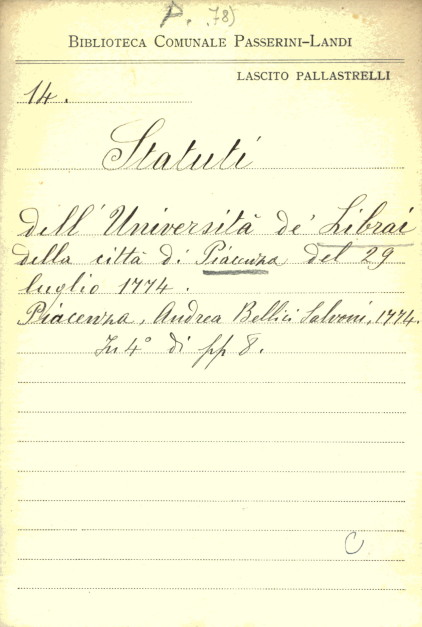 P. 78)
BIBLIOTECA COMUNALE PASSERINI-LANDI
LASCITO PALLASTRELLI
14.
Statuti
dell' Università de' Librai
della città di Piacenza del 29
luglio 1774.
Piacenza, Andrea Bellici Salvoni, 1774.
In 4° di pp 8.
C